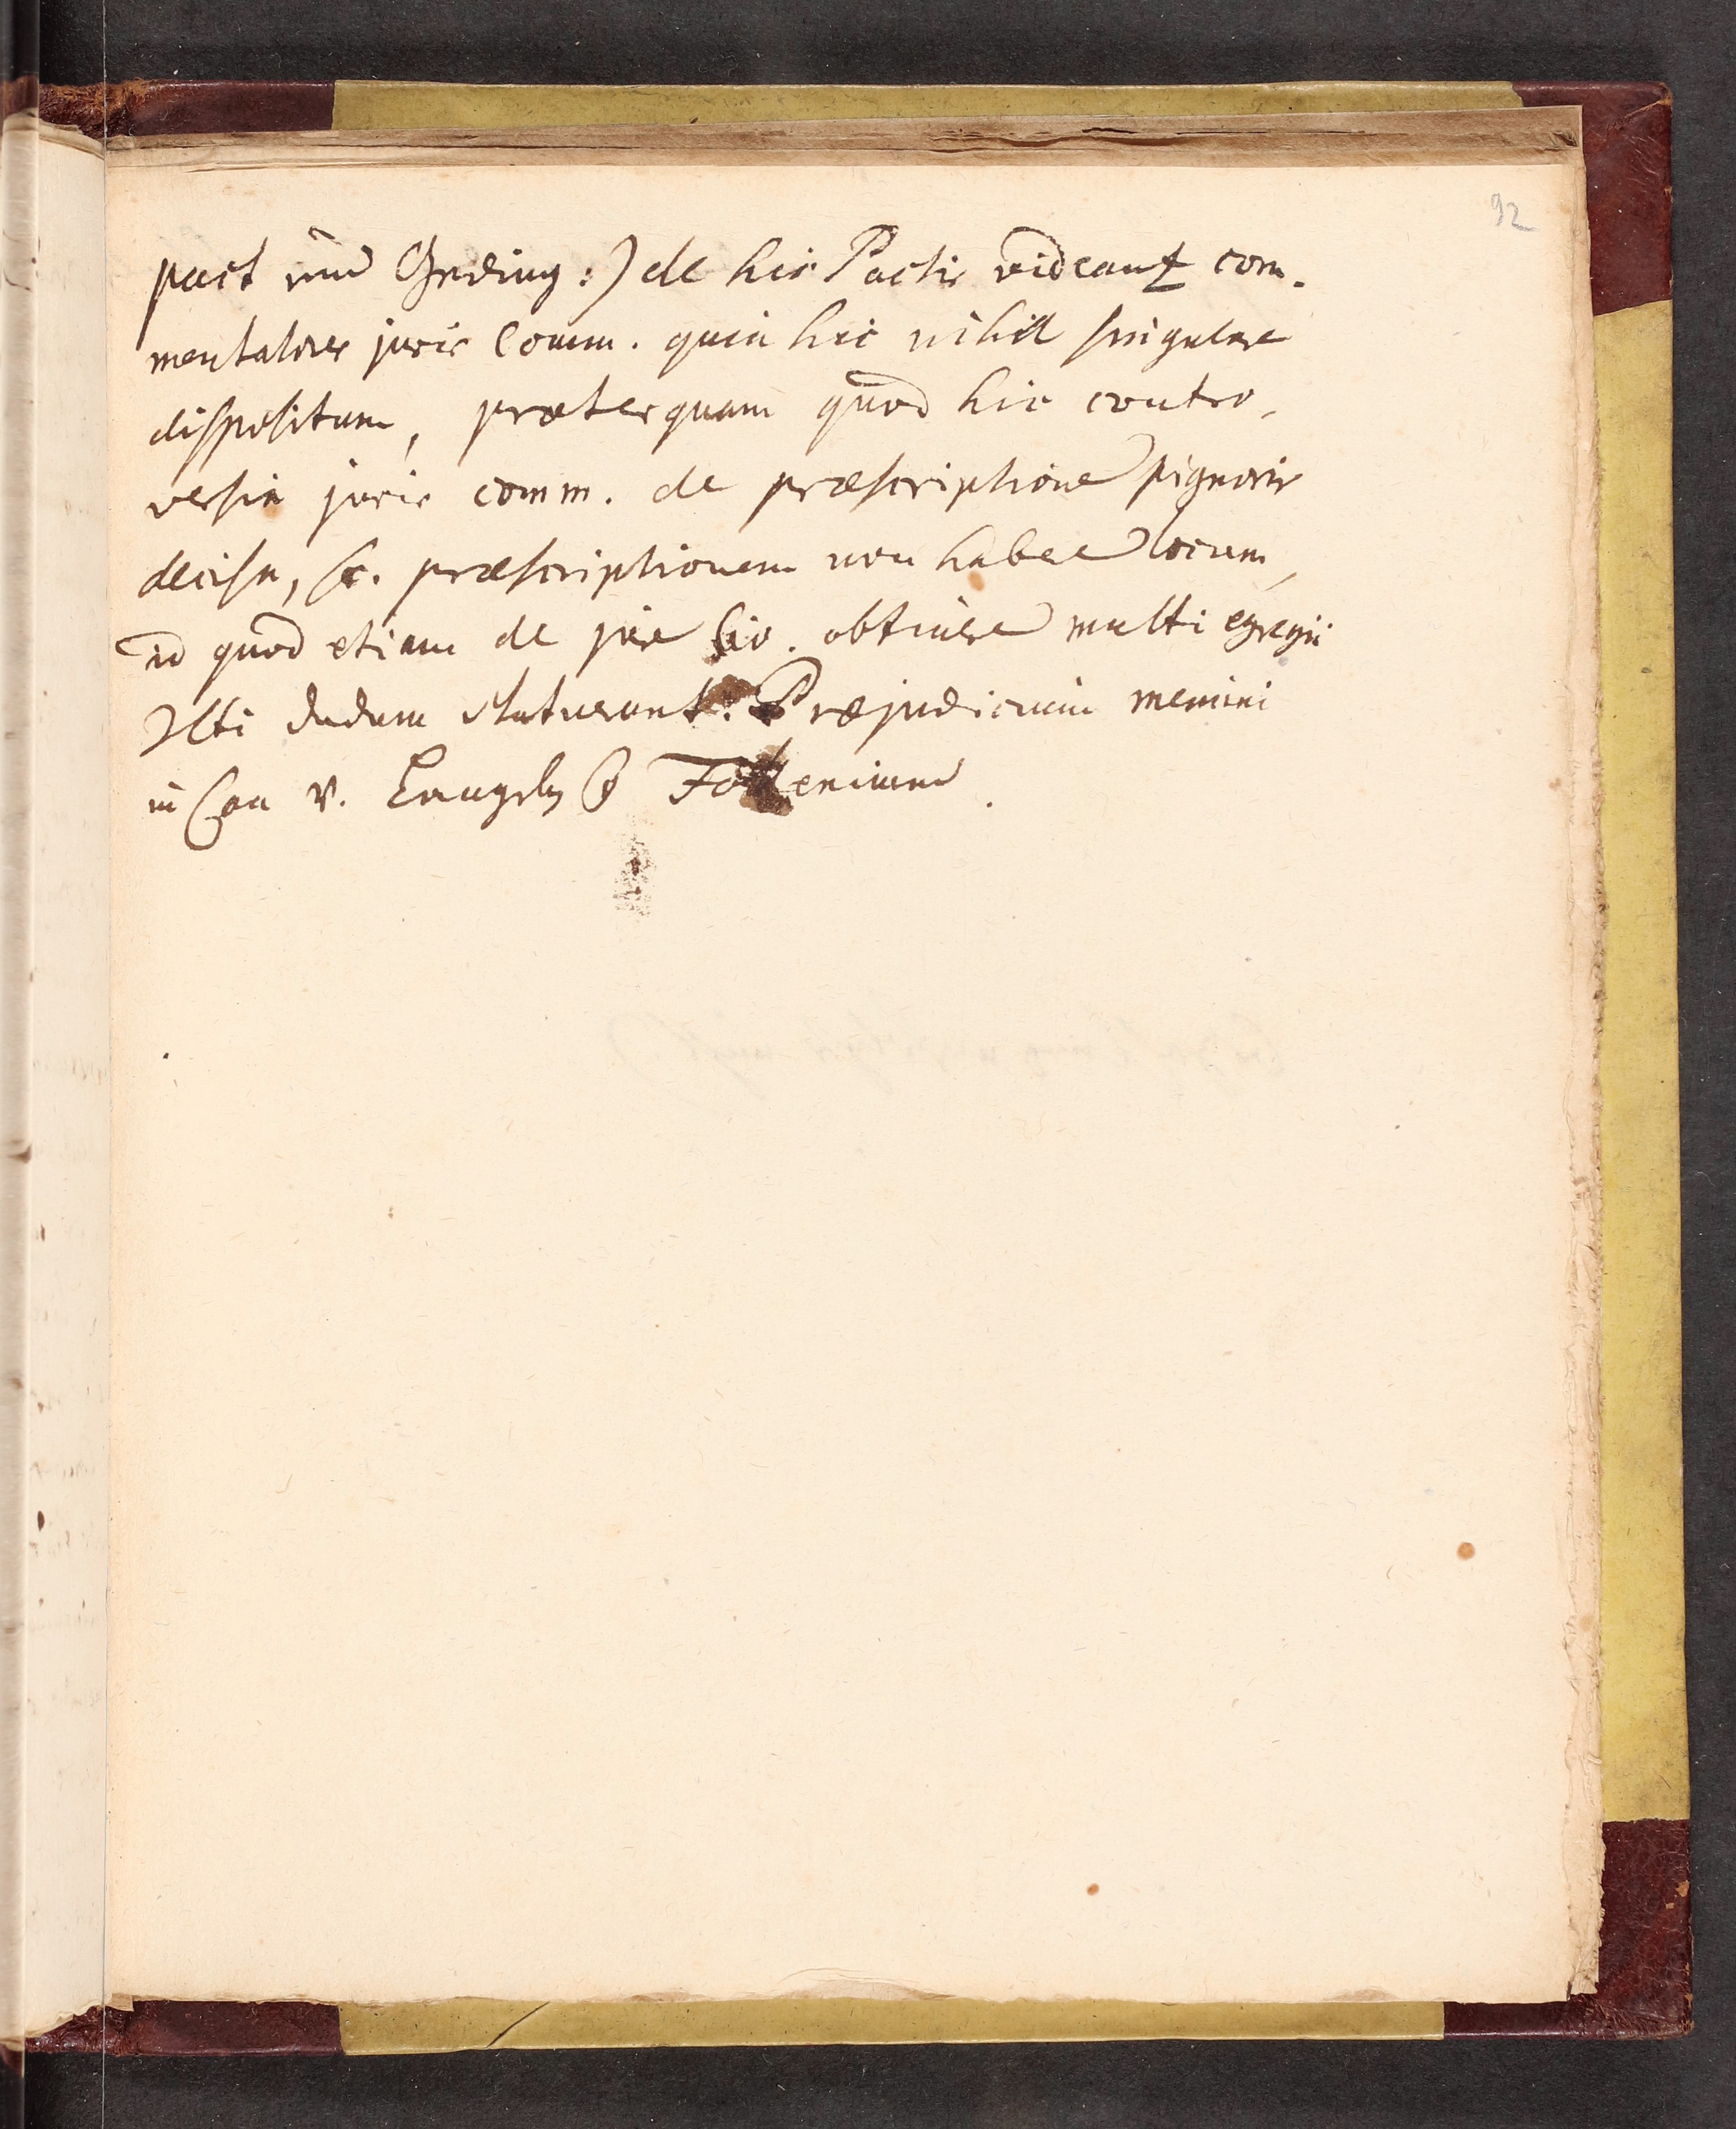 92
pact und Geding:) de his Pactis videantur com-
mentatores juris Comm. quia hic nihil singulare
dispositum, præterquam quod hic contro-
versia juris comm. de præscriptione pignoris
decisa, sc. præscriptionem non habere locum,
id quod etiam de jure Civ. obtinere multi egregii
JCti dudum statuerunt. Præjudicium memini
in Caa v.